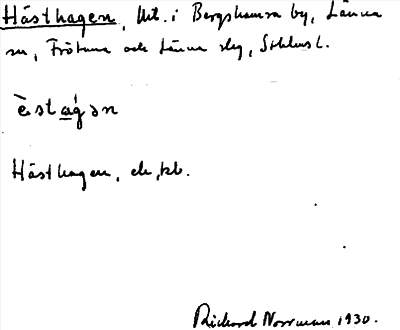 Hästhagen, Utt. i Bergshamra by, Länna
sn, Frötuna och Länna slg, Sthlms l.
èstag̀ən
Hästhagen, ek,kb.
Rickard Norrman 1930.